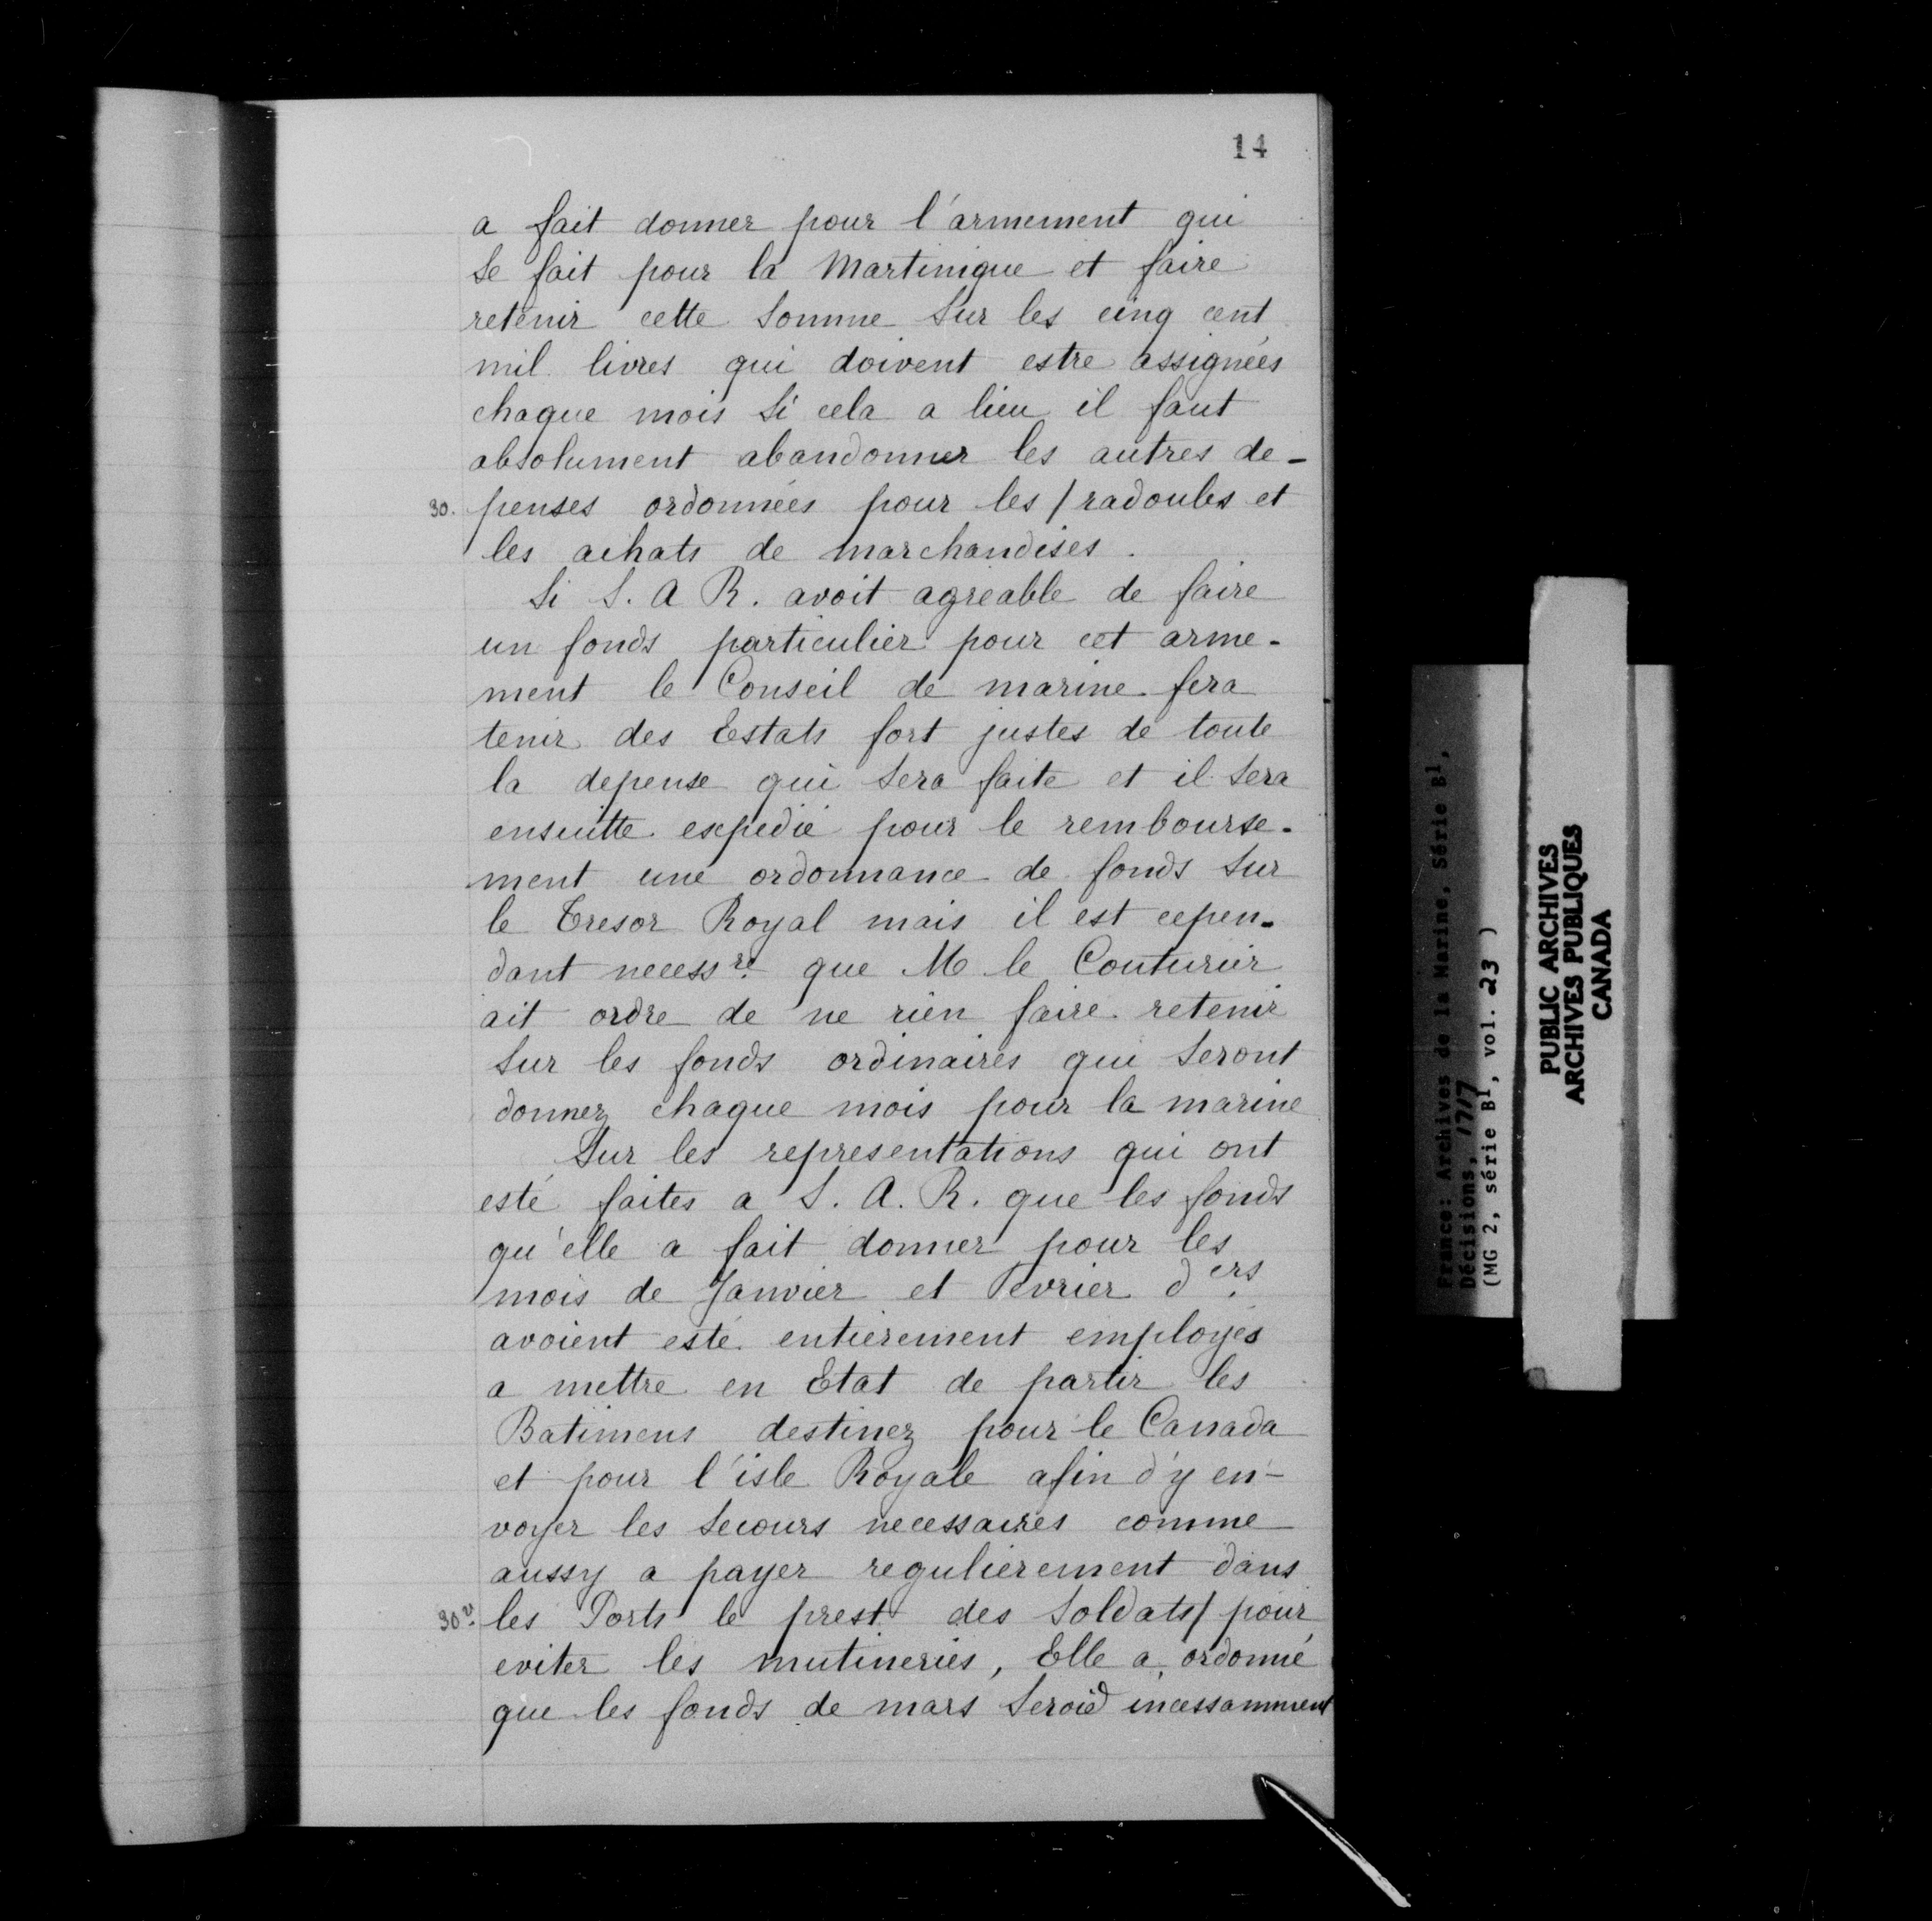 14
a fait donner pour l'armement qui
se fait pour la Martinique et faire
retenir cette somme sur les cinq cent
mil livres qui doivent estre assignées
chaque mois si cela a lieu il faut
absolument abandonner les autres de-
30. penses ordonnées pour les / radoubs et
les achats de marchandises.
Si S. A R. avoit agreable de faire
un fonds particulier pour cet arme-
ment le Conseil de marine fera
tenir des Estats fort justes de toute
la depense qui sera faite et il sera
ensuitte expedié pour le rembourse-
ment une ordonnance de fonds sur
le Tresor Royal mais il est cepen-
dant necessre que M le Couturier
ait ordre de ne rien faire retenir
sur les fonds ordinaires qui seront
donnez chaque mois pour la marine
Sur les representations qui ont
esté faites a S. A. R. que les fonds
qu'elle a fait donner pour les
mois de Janvier et Fevrier ders
avoient esté entierement employés
a mettre en Etat de partir les
Batimens destinez pour le Canada
et pour l'isle Royale afin d'y en-
voyer les secours necessaires comme
aussy a payer regulierement dans
30v. les Ports le prest des soldats / pour
eviter les mutineries, Elle a ordonné
que les fonds de mars seroiẽt incessamment
France: Archives de la Marine, Série B1,
Décisions, 1717
(MG 2, série B1, vol. 23 )
PUBLIC ARCHIVES
ARCHIVES PUBLIQUES
CANADA